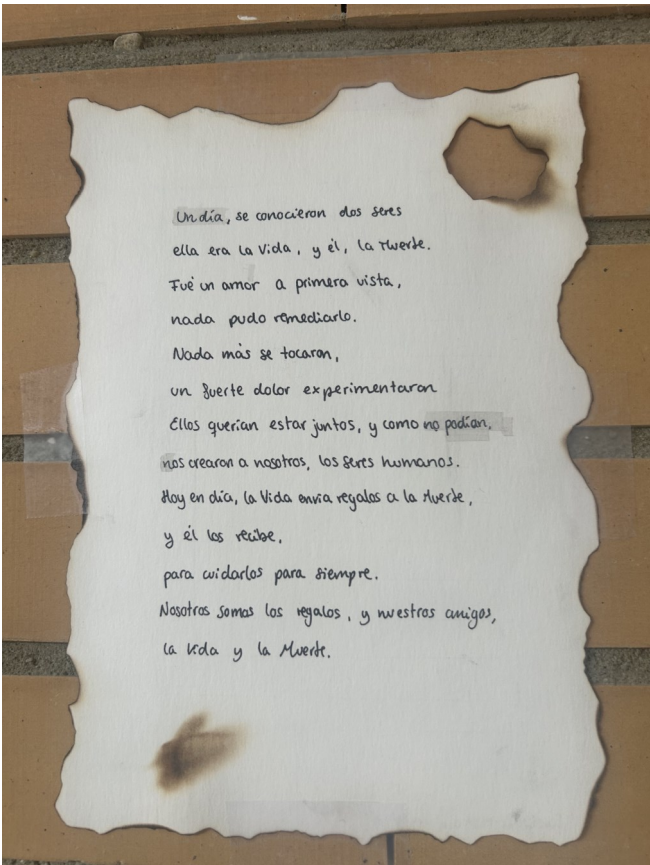 Un día, se conocieron dos seres
ella era la Vida, y él, la Muerte.
Fué un amor a primera vista,
nada pudo remediarlo.
Nada más se tocaron,
un fuerte dolor experimentaron
Ellos querían estar juntos, y como no podían,
nos crearon a nosotros, los seres humanos.
Hoy en día, la Vida envia regalos a la Muerte,
y él los recibe,
para cuidarlos para siempre.
Nosotros somos los regalos, y nuestros amigos,
la Vida y la Muerte.